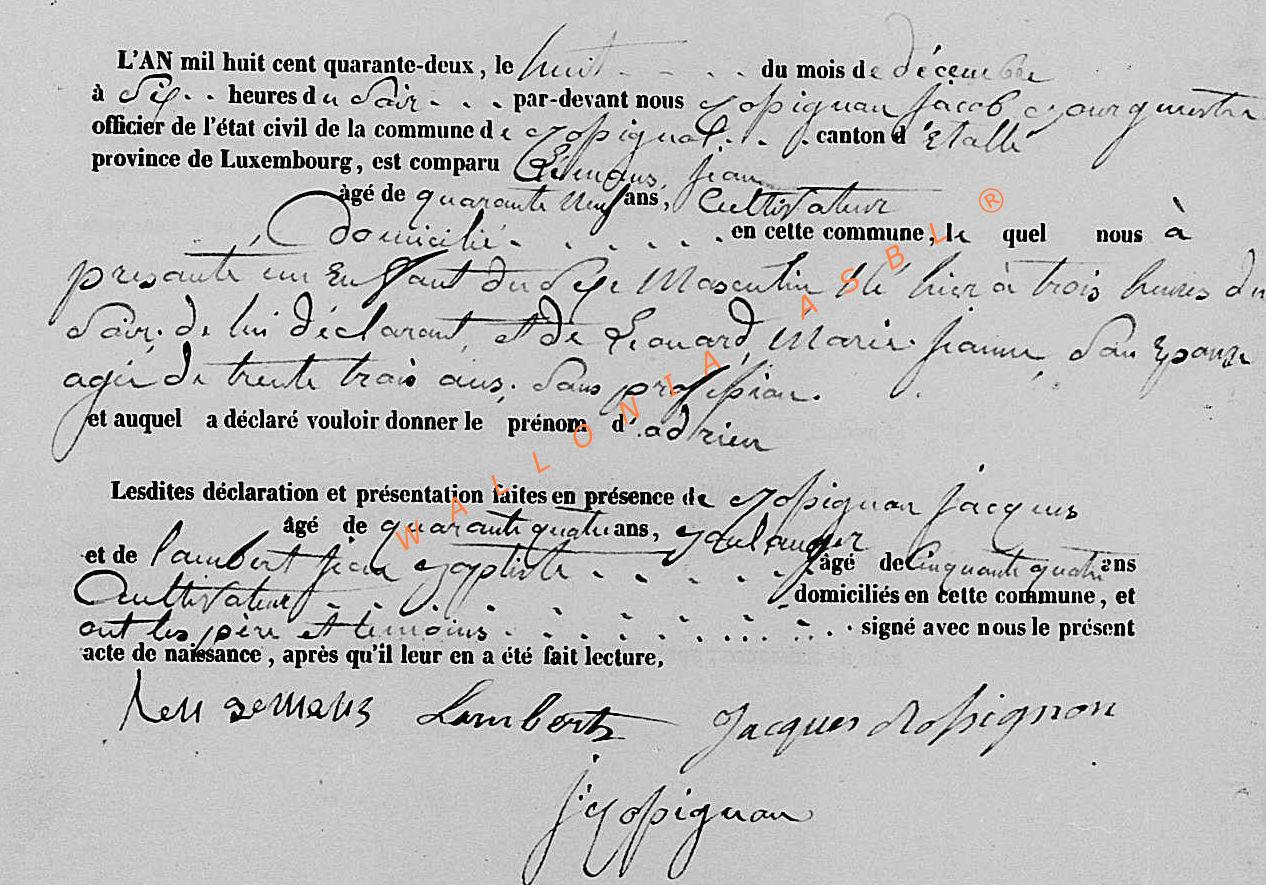 L'AN mil huit cent quarante-deux, le huit - - - du mois de décembre
à Six - - heures du Soir - - - par-devant nous Rossignon Jacob Bourgmestre
officier de l'état civil de la commune de Rossignol - - - canton d'Etalle
province de Luxembourg, est comparu Jean
âgé de quarante neuf ans, Cultivateur
Domicilié - - - - - - en cette commune, le quel nous à
presenté un Enfant du Sexe Masculin Né hier à trois heures du
Soir, de lui déclarant, et de Léonard, Marie Jeanne, Son Epouse
agée de trente trois ans, Sans profession.
et auquel a déclaré vouloir donner le prénom d'adrien
Lesdites déclaration et présentation faites en présence de Rossignon Jacques
âgé de quarante quatre ans, Boulanger
et de Lambert Jean Baptiste - - - - - âgé de Cinquante quatre ans
Cultivateur - - - - - domiciliés en cette commune, et
ont les père et temoins - - - - - signé avec nous le présent
acte de naissance, après qu'il leur en a été fait lecture,
Lambert Jacques Rossignon
J Rossignon
WALLONIA ASBL ®